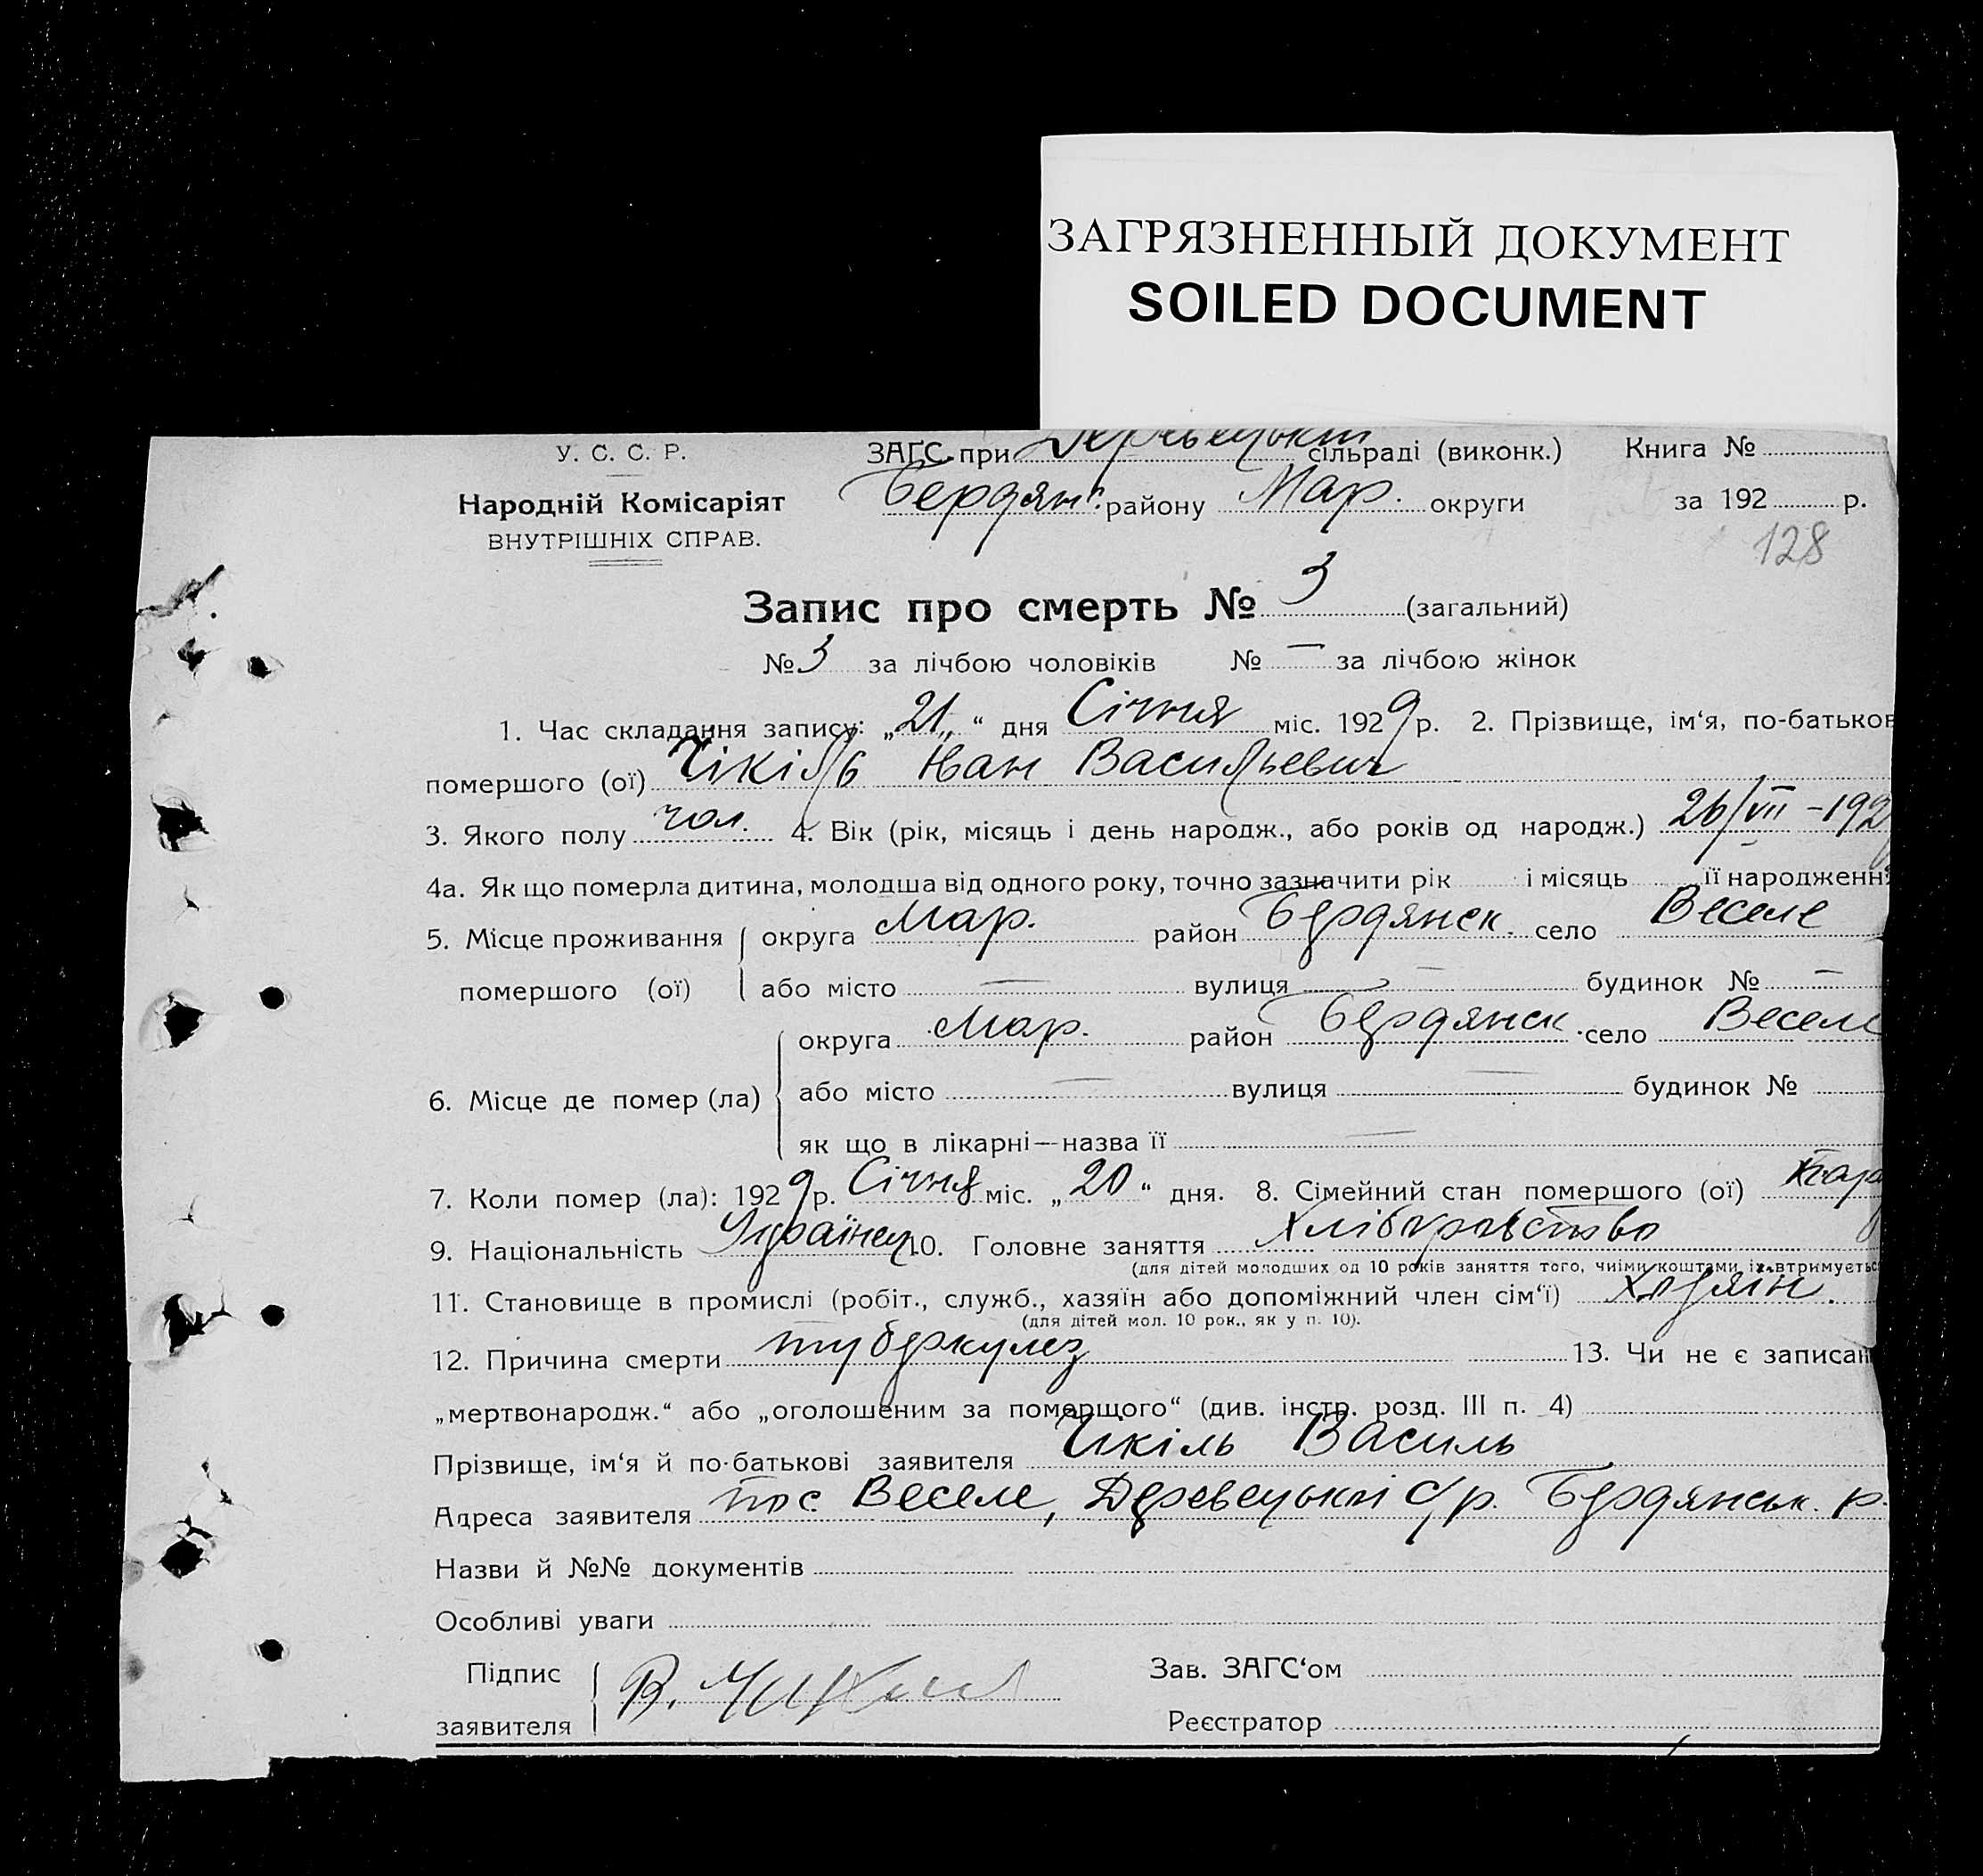 ЗАГРЯЗНЕННЫЙ ДОКУМЕНТ
SOILED DOCUMENT
У. С. С. Р. ЗАГС при сільраді (виконк.) Книга №
Народній Комісаріят Бердян. району Мар. округи за 192 р.
ВНУТРІШНІХ СПРАВ.
128
Запис про смерть № 3 (загальний)
№ 3 за лічбою чоловіків № — за лічбою жінок
1. Час складання запису: „21„“ дня Січня міс. 1929 р. 2. Прізвище, ім‘я, по-батьков
помершого (ої) Чікіль Іван Васильевич
3. Якого полу чол. 4. Вік (рік, місяць і день народж., або років од народж.) 26/VII –192
4а. Як що померла дитина, молодша від одного року, точно зазначити рік і місяць її народженн
5. Місце проживання округа Мар. район Бердянск. село Веселе
помершого (ої) або місто — вулиця — будинок № —
округа Мар. район Бердянск. село Веселе
6. Місце де помер (ла) або місто — вулиця — будинок №
як що в лікарні—назва її —
7. Коли помер (ла): 1929 р. Січня міс. „20“ дня. 8. Сімейний стан помершого (ої)
9. Національність Українец 10. Головне заняття Хліборобство
(для дітей молодших од 10 років заняття того, чиїми коштами їх втримуєтьс
11. Становище в промислі (робіт., служб., хазяїн або допоміжний член сім‘ї) Хазяїн.
(для дітей мол. 10 рок., як у п. 10).
12. Причина смерти туберкулез 13. Чи не є записан
„мертвонародж.“ або „оголошеним за померщого“ (див. інстр. розд. III п. 4)
Прізвище, ім‘я й по-батькові заявителя Чікіль Василь
Адреса заявителя пос. Веселе, Деревецької с/р. Бердянськ. р.
Назви й №№ документів
Особливі уваги
Підпис Зав. ЗАГС‘ом
заявителя В. Чикил
Реєстратор